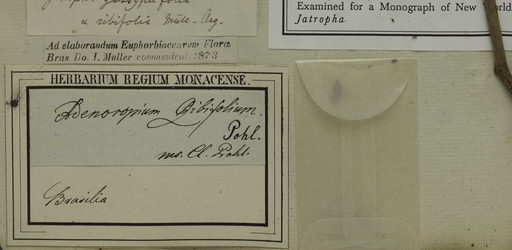 α ribifolia Müll-Arg.
Ad elaborandum Euphorbiacearum Florae
Bras Do. I. Muller communicat. 1873
Examined for a Monograph of New World
Jatropha.
HERBARIUM REGIUM MONACENSE.
Adenoropium Ribifolium.
Pohl.
ms. Cl. Pohl.
Brasilia